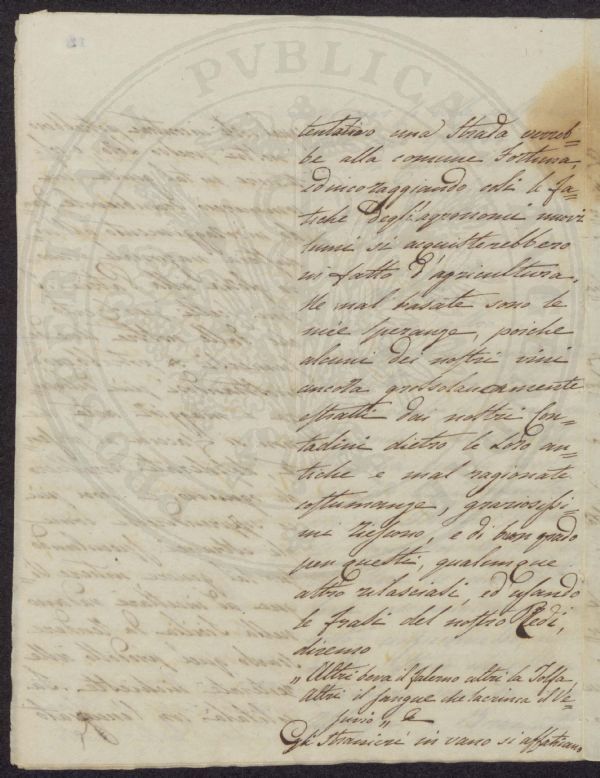 PVBLICA
tentativo una Strada verreb=
be alla comune Fortuna,
ed incoraggiando così le fa=
tiche degli agronomi nuovi
lumi si acquisterebbero
in fatto d'agricultura.
Ne mal basate sono le
mie speranze, poichè
alcuni dei nostri vini
ancora grossolanamente
estratti dai nostri Con=
tadini dietro le Loro an=
tiche e mal ragionate
costumanze, graziosissi=
mi riescono, e di buon grado
per questi, qualunque
altro rilasciasi, ed usando
le frasi del nostro Redi,
diremo
„ Altri beva il falerno altri la Tolfa,
Altri il sangue che lacrima il Ve=
suvio „
Gli stranieri in vano si affaticano